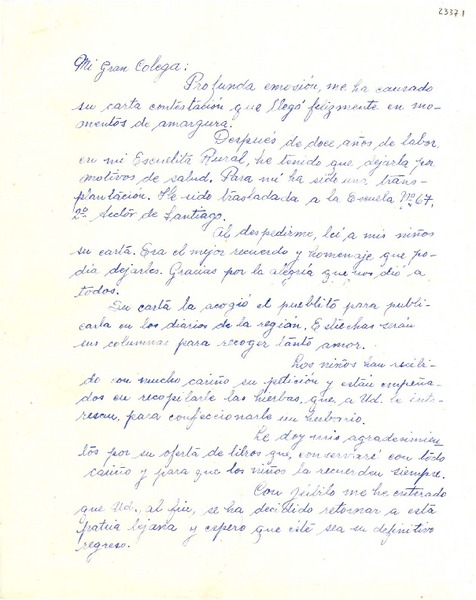 23371
Mi Gran Colega:
Profunda emoción, me ha causado
su carta contestación que llegó felizmente en mo-
mentos de amargura.
Después de doce años de labor
en mi Escuelita Rural, he tenido que dejarla por
motivos de salud. Para mí ha sido una trans-
plantación. He sido trasladada a la Escuela Nº 64,
2º Sector de Santiago.
Al despedirme, leí a mis niños
su carta. Era el mejor recuerdo y homenaje que po-
día dejarles. Gracias por la alegría que nos dió a
todos.
Su carta la acogió el pueblito para publi-
carla en los diarios de la región. Estrechas serán
sus columnas para recoger tanto amor.
Los niños han recibi-
do con mucho cariño su petición y están empeña-
dos en recopilarle las hierbas, que a Ud. le inte-
resan, para confeccionarle un herbario.
Le doy mis agradecimien-
tos por su oferta de libros que, conservaré con todo
cariño y para que los niños la recuerden siempre.
Con júbilo me he enterado
que Ud., al fin, se ha decidido retornar a esta
Patria lejana y espero que éste sea su definitivo
regreso.